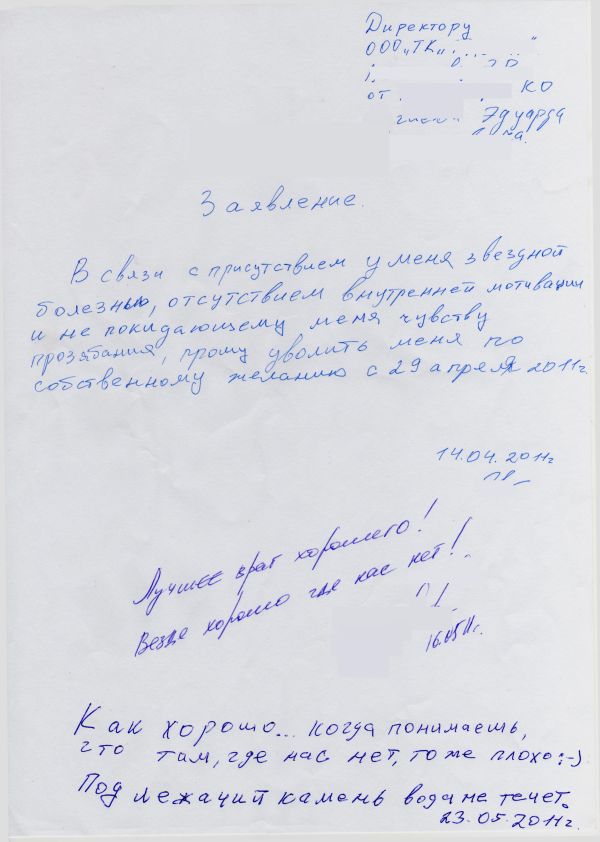 Директору
ООО „ТК„
от КО
Эдуарда
Заявление.
В связи с присутствием у меня звездной
болезнью, отсутствием внутренней мотивации
и не покидающему меня чувству
прозябания, прошу уволить меня по
собственному желанию с 29 апреля 2011г.
14.04.2011г
Лучшее враг хорошего!
Везде хорошо где нас нет!
16.05.11г.
Как хорошо... когда понимаешь,
что там, где нас нет, тоже плохо :-)
Под лежачий камень вода не течет.
23.05.2011г.